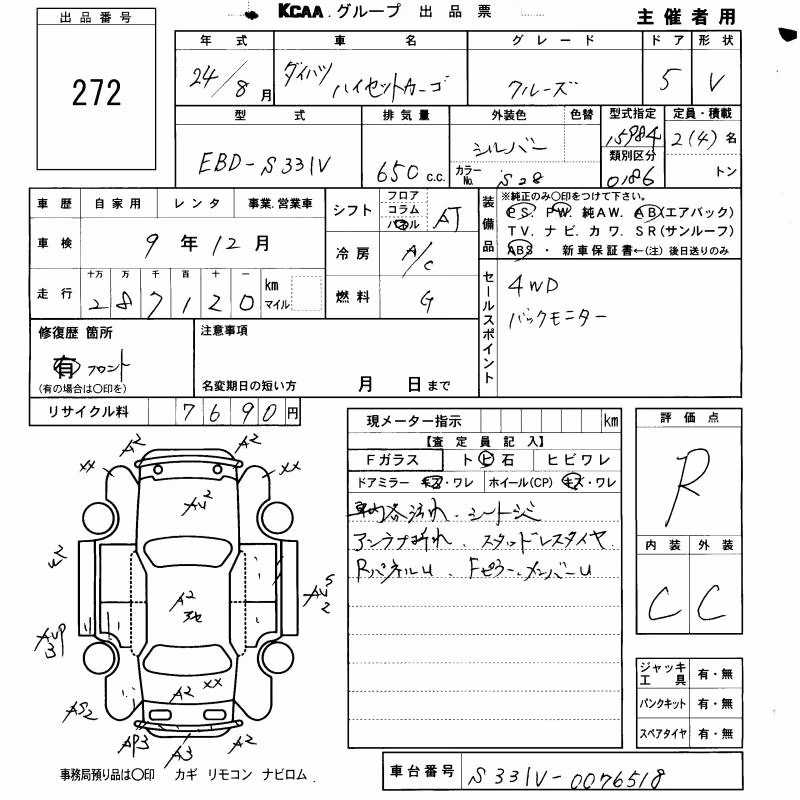 KCAA.グループ 出品票
主催者用
出品番号
272
年式 車名 グレード ドア 形状
24/8月 ダイハツ ハイゼットカーゴ クルーズ 5 V
型式 排気量 外装色 色替 型式指定 定員・積載
EBD-S331V 650 c.c. シルバー 15984 2(4)名
カラーNo. S28 類別区分 0186 トン
車歴 自家用 レンタ 事業.営業車
シフト フロア コラム パネル AT
装備品 ※純正のみ○印をつけて下さい。
PS. PW. 純AW. AB(エアバック)
TV. ナビ. カワ. SR(サンルーフ)
ABS ・ 新車保証書←(注) 後日送りのみ
車検 9年12月
冷房 A/C
走行 十万 万 千 百 十 一
287120 km マイル
燃料 G
セールスポイント
4WD
バックモニター
修復歴 箇所
有 フロント
(有の場合は○印を)
注意事項
名変期日の短い方 月 日まで
リサイクル料 7690円
現メーター指示 km
【査定員記入】
Fガラス ト ビ 石 ヒビワレ
ドアミラー キズ・ワレ ホイール(CP) キズ・ワレ
車内各汚れ. シートシミ
アンテナ折れ. スタッドレスタイヤ.
RパネルU. Fピラー. メンバーU
評価点
R
内装 外装
C C
A2 A2
×× ××
AU2
A2
AU5 2
AUP 3
A2 ××
AS2
AP3 A3 A2
ジャッキ工具 有・無
パンクキット 有・無
スペアタイヤ 有・無
事務局預り品は○印 カギ リモコン ナビロム.
車台番号 S331V-0076518